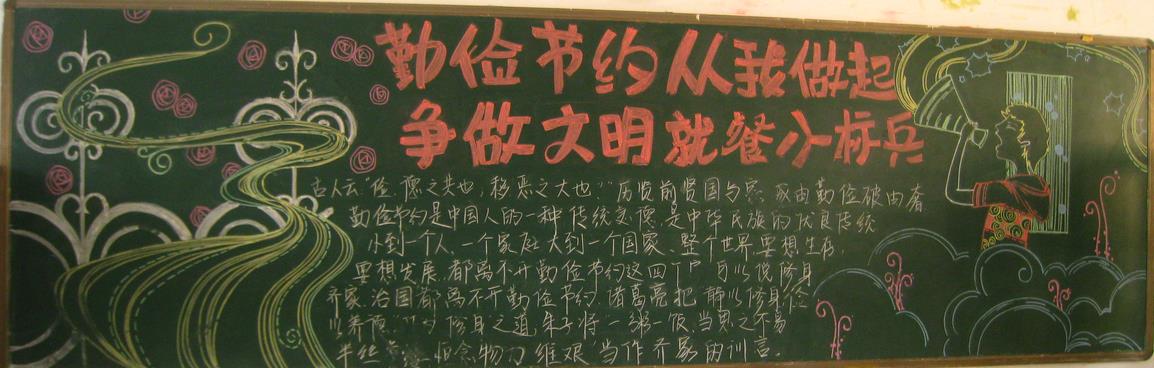 勤俭节约从我做起
争做文明就餐小标兵
古人云"俭,德之共也,移恶之大也"历览前贤国与家 成由勤俭破由奢
勤俭节约是中国人的一种传统美德,是中华民族的优良传统
小到一个人、一个家庭,大到一个国家、整个世界,要想生存,
要想发展,都离不开勤俭节约这四个字 可以说修身
齐家治国都离不开勤俭节约 诸葛亮把"静以修身俭
以养德"修身之道,朱子将"一粥一饭,当思之不易
半丝 恒念物力维艰"当作齐家的训言.